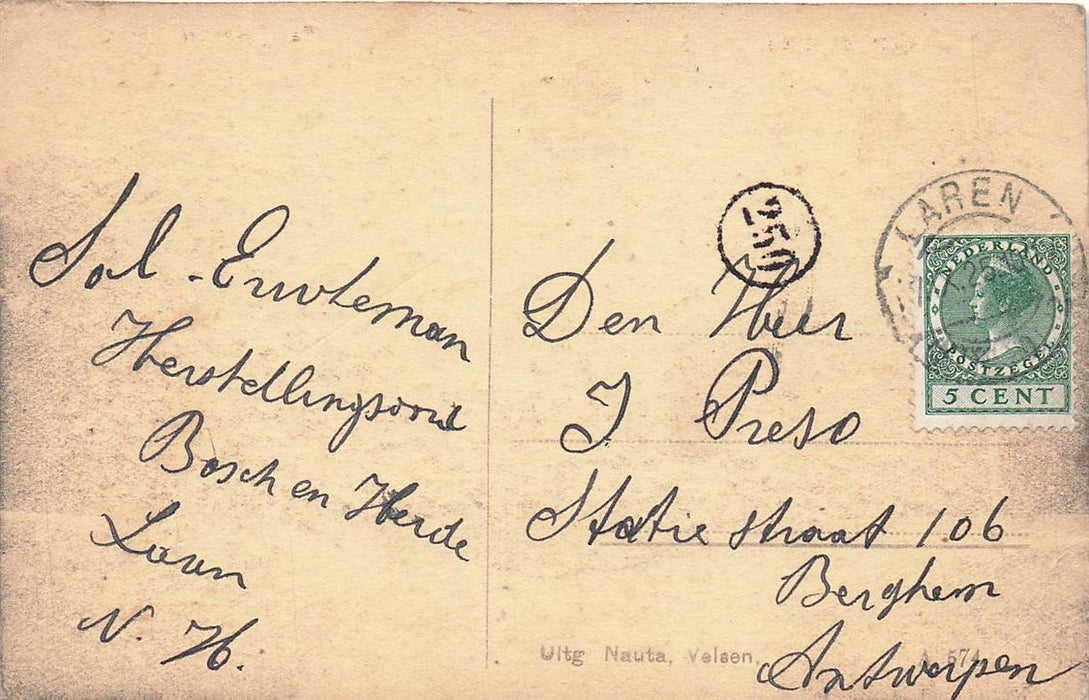 Sal - Eruteman
Herstellingsoord
Bosch en Heide
Laren
N. H.
250
LAREN
NEDERLAND
POSTZEGEL
5 CENT
Den Heer
J Preso
Statie straat 106
Berghem
Antwerpen
Uitg Nauta, Velsen
A 574